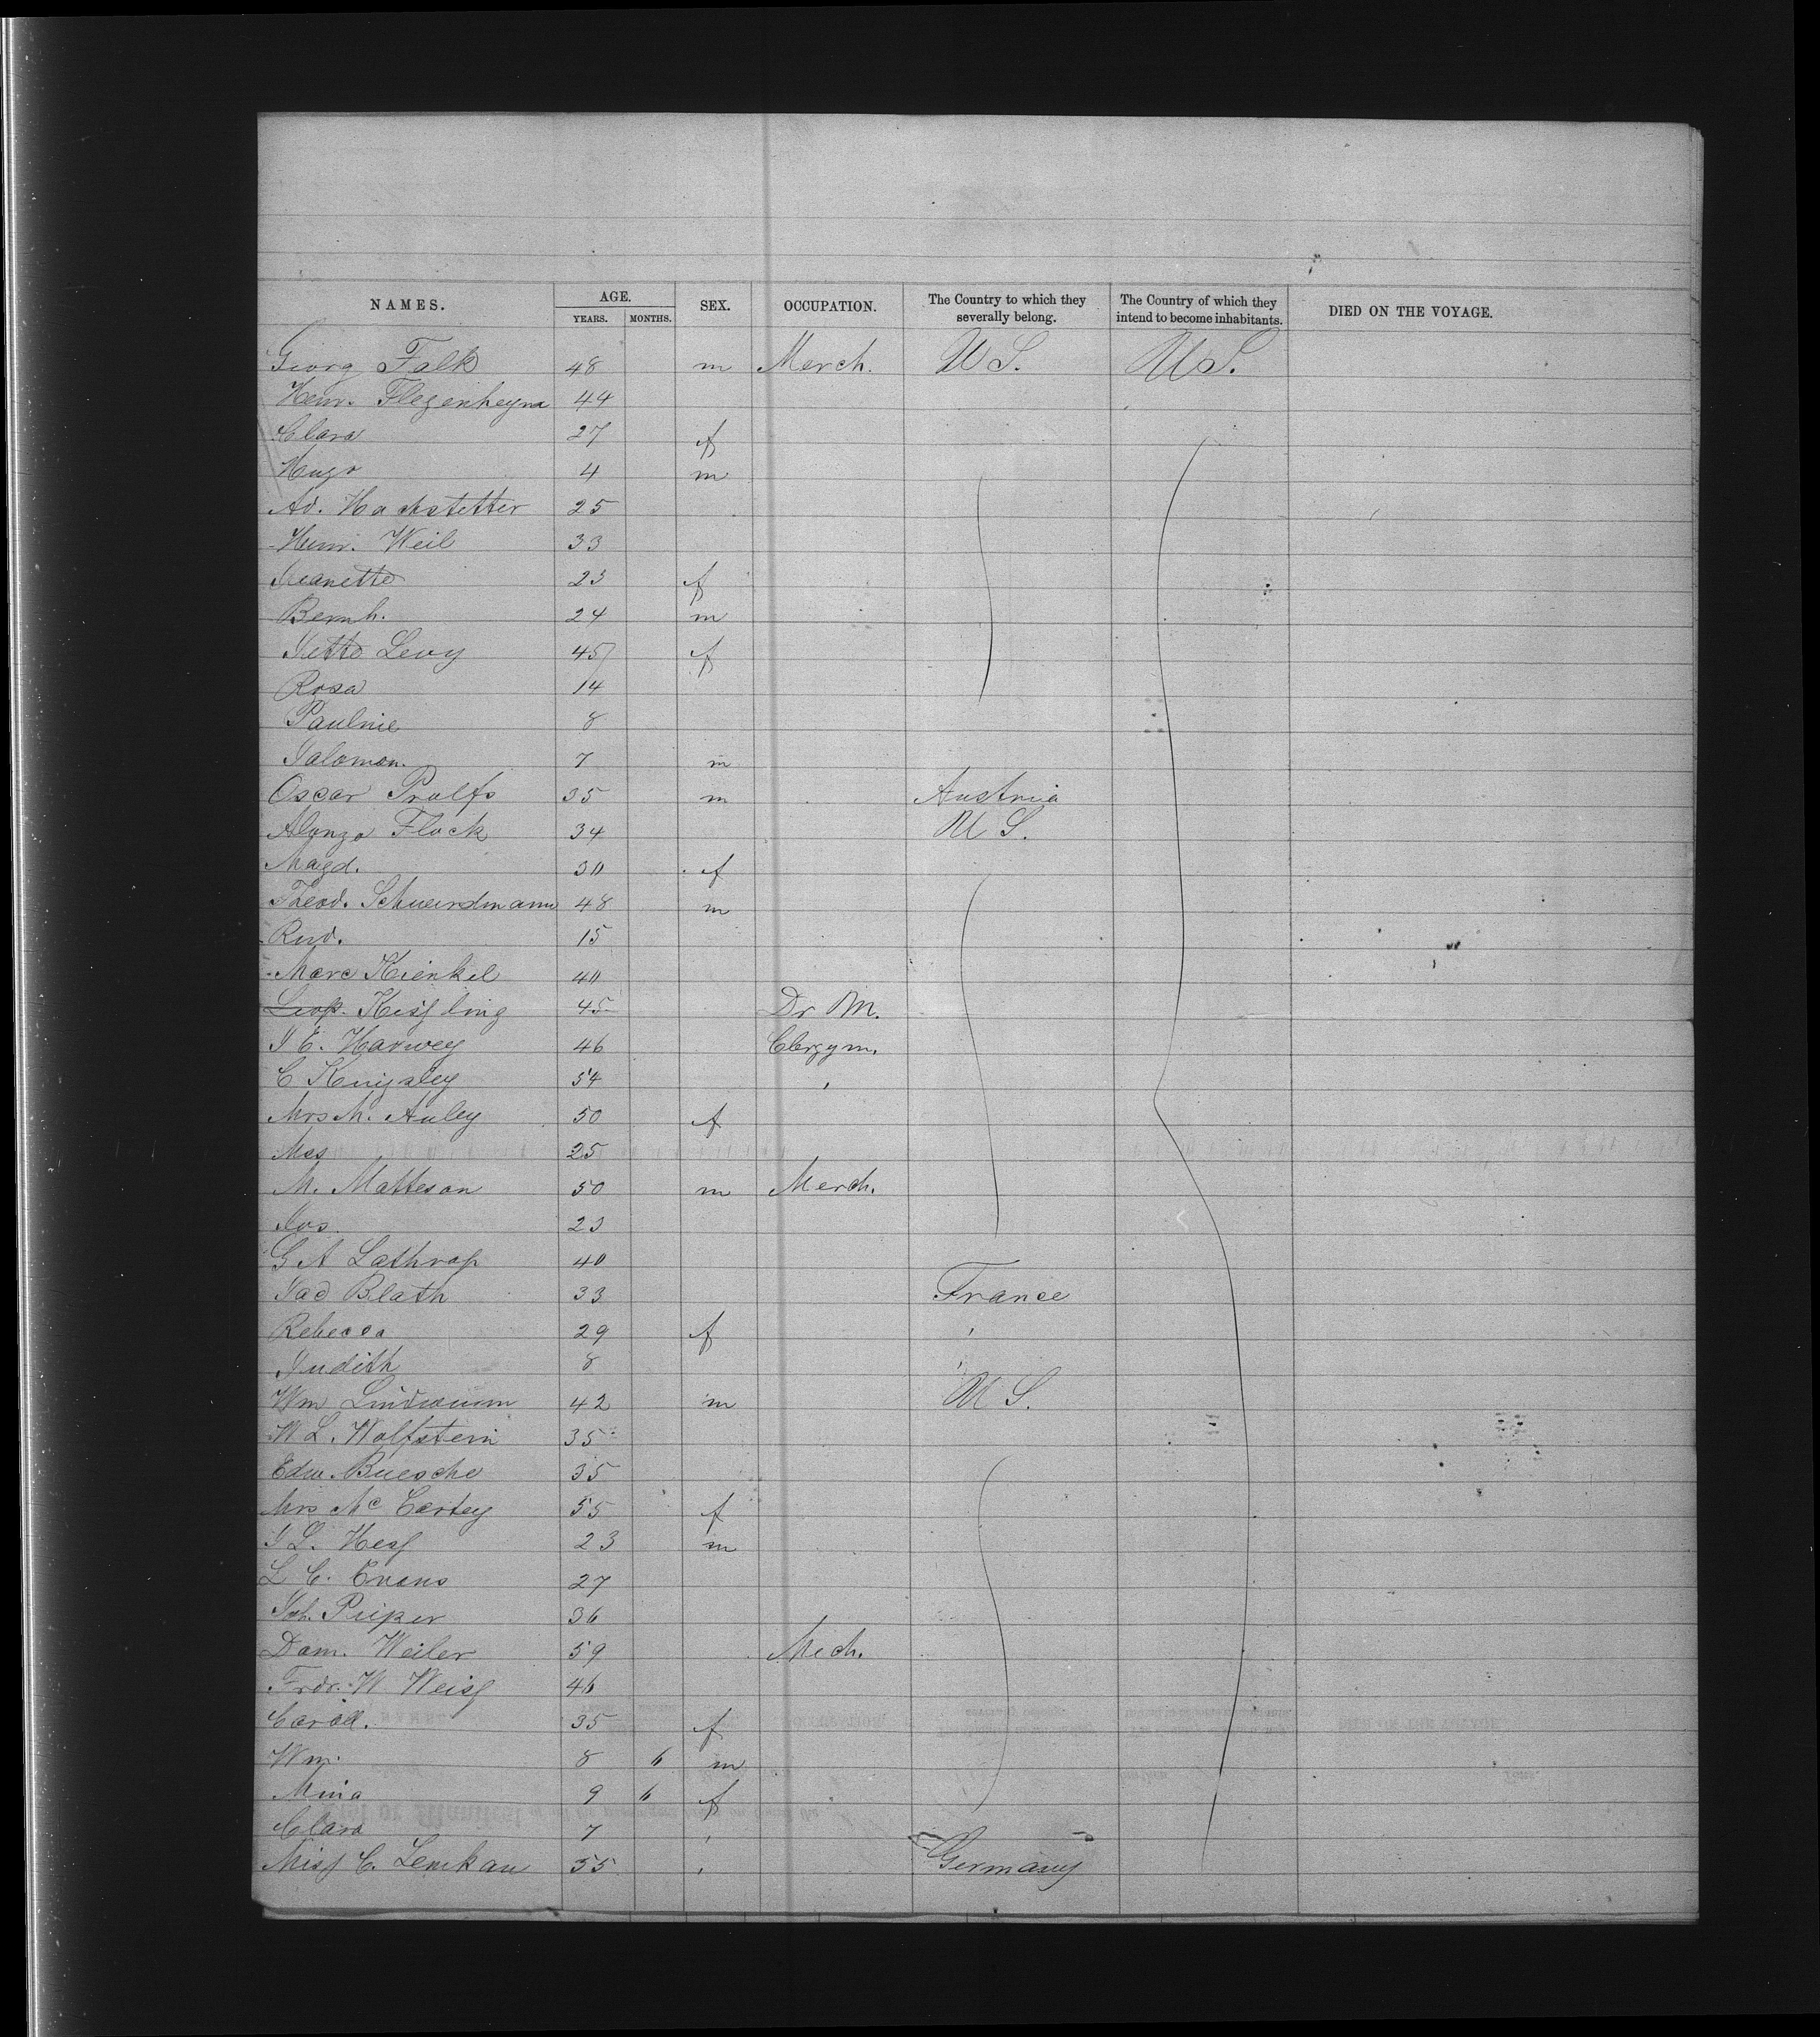 NAMES. AGE. YEARS. MONTHS. SEX. OCCUPATION. The Country to which they severally belong. The Country of which they intend to become inhabitants. DIED ON THE VOYAGE.
Georg Falk 48 m Merch. U S. U S.
Heinr. Flegenheyma 44
Clara 27 f
Hugo 4 m
Ad. Hochstetter 25
Heinr. Weil 33
Jeanette 23 f
Bernh. 24 m
Jette Levy 45 f
Rosa 14
Pauline 8
Salomon. 7 m
Oscar Prolfs 35 m Austria
Alonzo Flock 34 U S.
Magd. 30 f
Theod. Schwerdmann 48 m
Rud. 15
Marc Kienkel 40
Leop. Kissling 45 Dr M.
J E. Harwey 46 Clergym.
C Kingsley 54 "
Mrs M. Auley 50 f
Mrs 25
M. Matteson 50 m Merch.
Jos. 23
G A Lathrop 40
Jac Blath 33 France
Rebecca 29 f "
Judith 8 "
Wm Lindwurm 42 m U S.
W L. Wolfstein 35
Edw. Buesche 35
Mrs Mc Cartey 55 f
J L. Hess 23 m
L C. Evans 27
Joh. Pieper 36
Dam. Weiler 59 Mech.
Frdr. W Weiss 46
Caroll. 35 f
Wm. 8 6 m
Mina 9 6 f
Clara 7 "
Miss C. Lemkau 55 " Germany